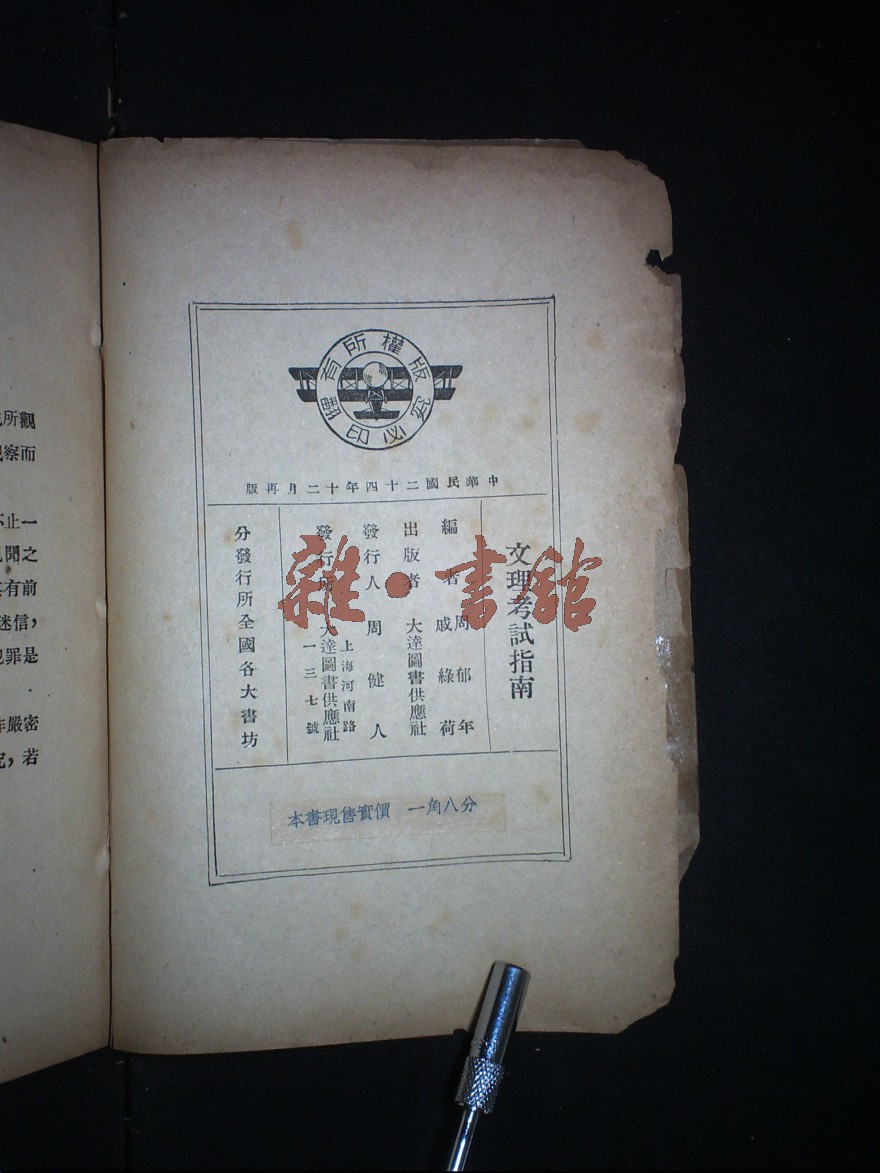 版權所有
翻印必究
中華民國二十四年十二月再版
文理考試指南
編著 周郁年
戚綠荷
出版者 大達圖書供應社
發行人 周健人
發行所 上海河南路
大達圖書供應社
一三七號
分發行所全國各大書坊
本書現售實價 一角八分
雜·書館
所觀
察而
不止一
聞之
有前
迷信,
犯罪是
嚴密
若